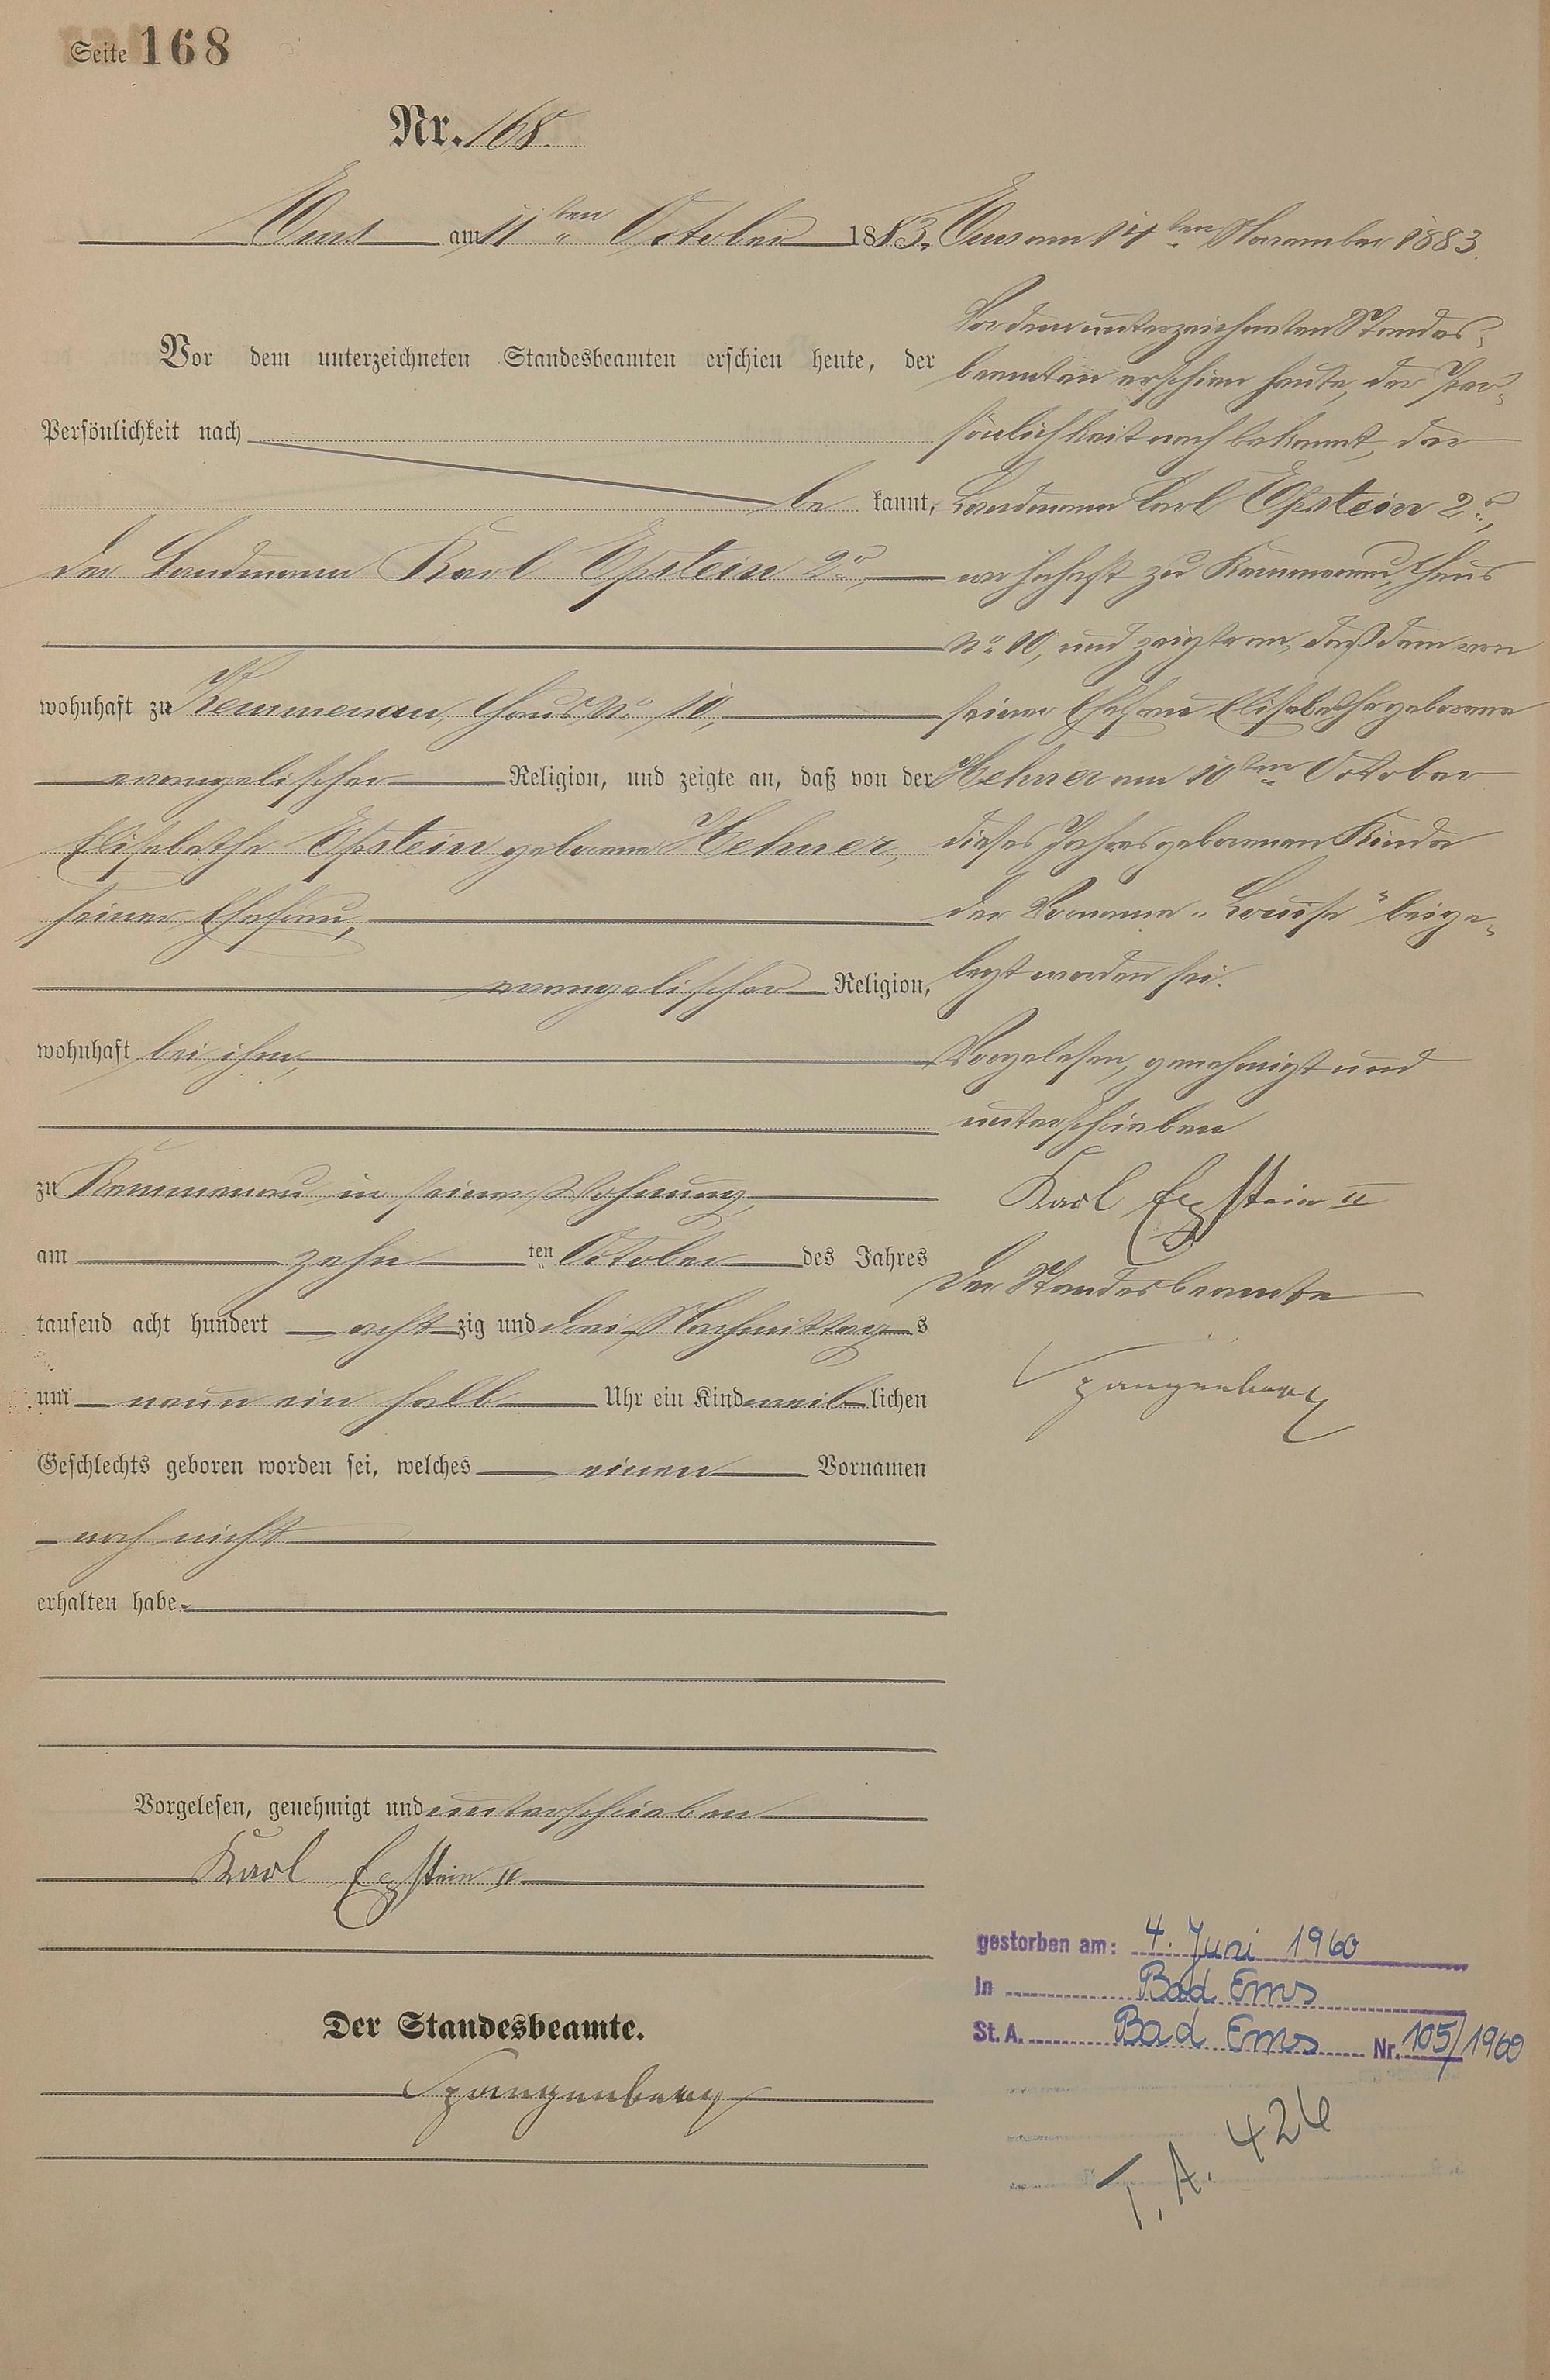 Seite 168
Nr. 168.
Ems am 11ten October 1883.
Vor dem unterzeichneten Standesbeamten erschien heute, der
Persönlichkeit nach
be kannt,
der Landmann Karl Epstein 2r,
wohnhaft zu Kemmenau, Haus No. 10,
evangelischer Religion, und zeigte an, daß von der
Elisabethe Epstein geborene Hehner,
seiner Ehefrau,
evangelischer Religion,
wohnhaft bei ihm,
zu Kemmenau in seiner Wohnung,
am zehn ten October des Jahres
tausend acht hundert acht zig und drei Nachmittag s
um neun ein halb Uhr ein Kind weib lichen
Geschlechts geboren worden sei, welches einen Vornamen
noch nicht
erhalten habe
Vorgelesen, genehmigt und unterschrieben
Karl Epstein II
Der Standesbeamte.
Spangenberg
Ems am 14ten November 1883.
Vor dem unterzeichneten Standes-
beamten erschien heute, der Per-
sönlichkeit nach bekannt, der
Landmann Carl Epstein 2r,
wohnhaft zu Kemmenau, Haus
No. 10, und zeigte an, daß dem von
seiner Ehefrau Elisabethe geborene
Hehner am 10ten October
dieses Jahres geborenen Kinde
der Vorname "Louise" beige-
legt worden sei.
Vorgelesen, genehmigt und
unterschrieben
Karl Epstein II
Der Standesbeamte
Spangenberg
gestorben am: 4. Juni 1960
in Bad Ems
St. A. Bad Ems Nr. 105/1960
T. A. 426